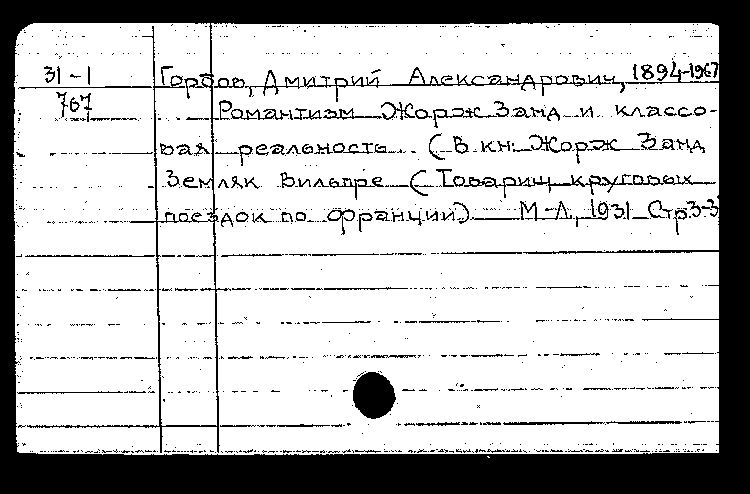 31-1 Горбов, Дмитрий Александрович, 1894-1967
767 Романтизм Жорж Занд и классо-
вая реальность. (В кн: Жорж Занд
Земляк Вильпре (Товарищ круговых
поездок по Франции) М-Л, 1931 Стр 3-3